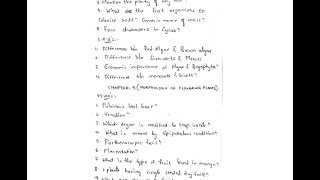 3. Mention the ploidy of any
4. What are the first organisms to
Colonise rock? Generic name of moss?
5. Few characters in Cycas?
S.A.Q's:-
1. Difference b/w Red Algae & Brown algae
2. Difference b/w Liverworts & Mosses
3. Economic importance of Algae & Bryophyta?
4. Difference b/w monocots & Dicots?
CHAPTER: 5 (MORPHOLOGY OF FLOWERING PLANTS)
V.S.A.Q's:-
1. Pulvinus leaf base?
2. Venation?
3. Which organ is modified to trap insects?
4. What is meant by Epipetalous condition?
5. Parthenocarpic fruit?
6. Placentation?
7. What is the type of fruit found in mango?
8. 2 plants having single seeded dry fruits?
9.